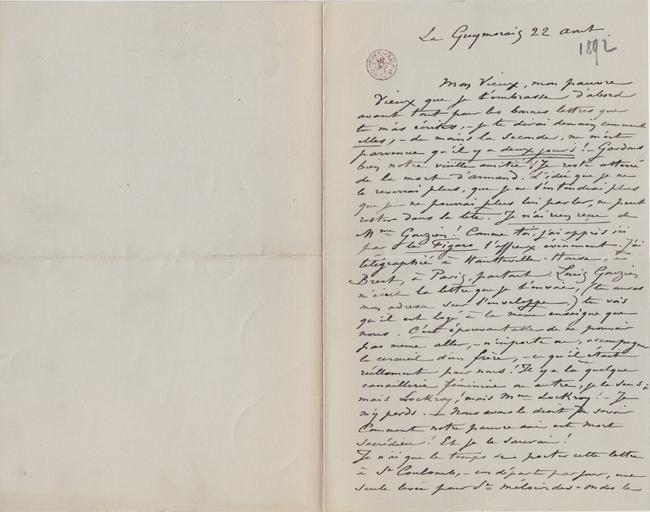 La Guymorais 22 Aout
1892
Mon Vieux, mon pauvre
Vieux que je t'embrasse d'abord
avant tout par les bonnes lettres que
tu m'as écrites, – je te dirai demain comment
elles, – du moins la seconde, ne m'est
parvenue qu'il y a deux jours ! – Gardons
bien notre vieille amitié ! Je reste atterré
de la mort d'Armand. L'idée que je ne
le reverrai plus, que je ne l'entendrai plus
que je ne pourrai plus lui parler, ne peut
rester dans la tête. Je n'ai rien reçu de
Mme Gouzien ! Comme toi, j'ai appris ici
par le Figaro l'affreux évènement. J'ai
télégraphié à Hauteville-House, à
Brest, à Paris, partout. Louis Gouzien
m'écrit la lettre que je t'envoie, (tu auras
mon adresse sur l'enveloppe.) tu vois
qu'il est logé à la même enseigne que
nous. C'est épouvantable de ne pouvoir
pas même aller, – n'importe où, accompagner
le cercueil d'un frère, – ce qu'il était
réellement pour nous ! Il y a là quelque
canaillerie féminine ou autre, je le sens ;
mais Lockroy ! mais Mme Lockroy ! – Je
m'y perds. – Nous avons le droit de savoir
Comment notre pauvre ami est mort
sacrédieu ! Et je le saurai !
Je n'ai que le temps de porter cette lettre
à St Coulomb, – un départ par jour, une
seule levée pour St Méloir-des-ondes le